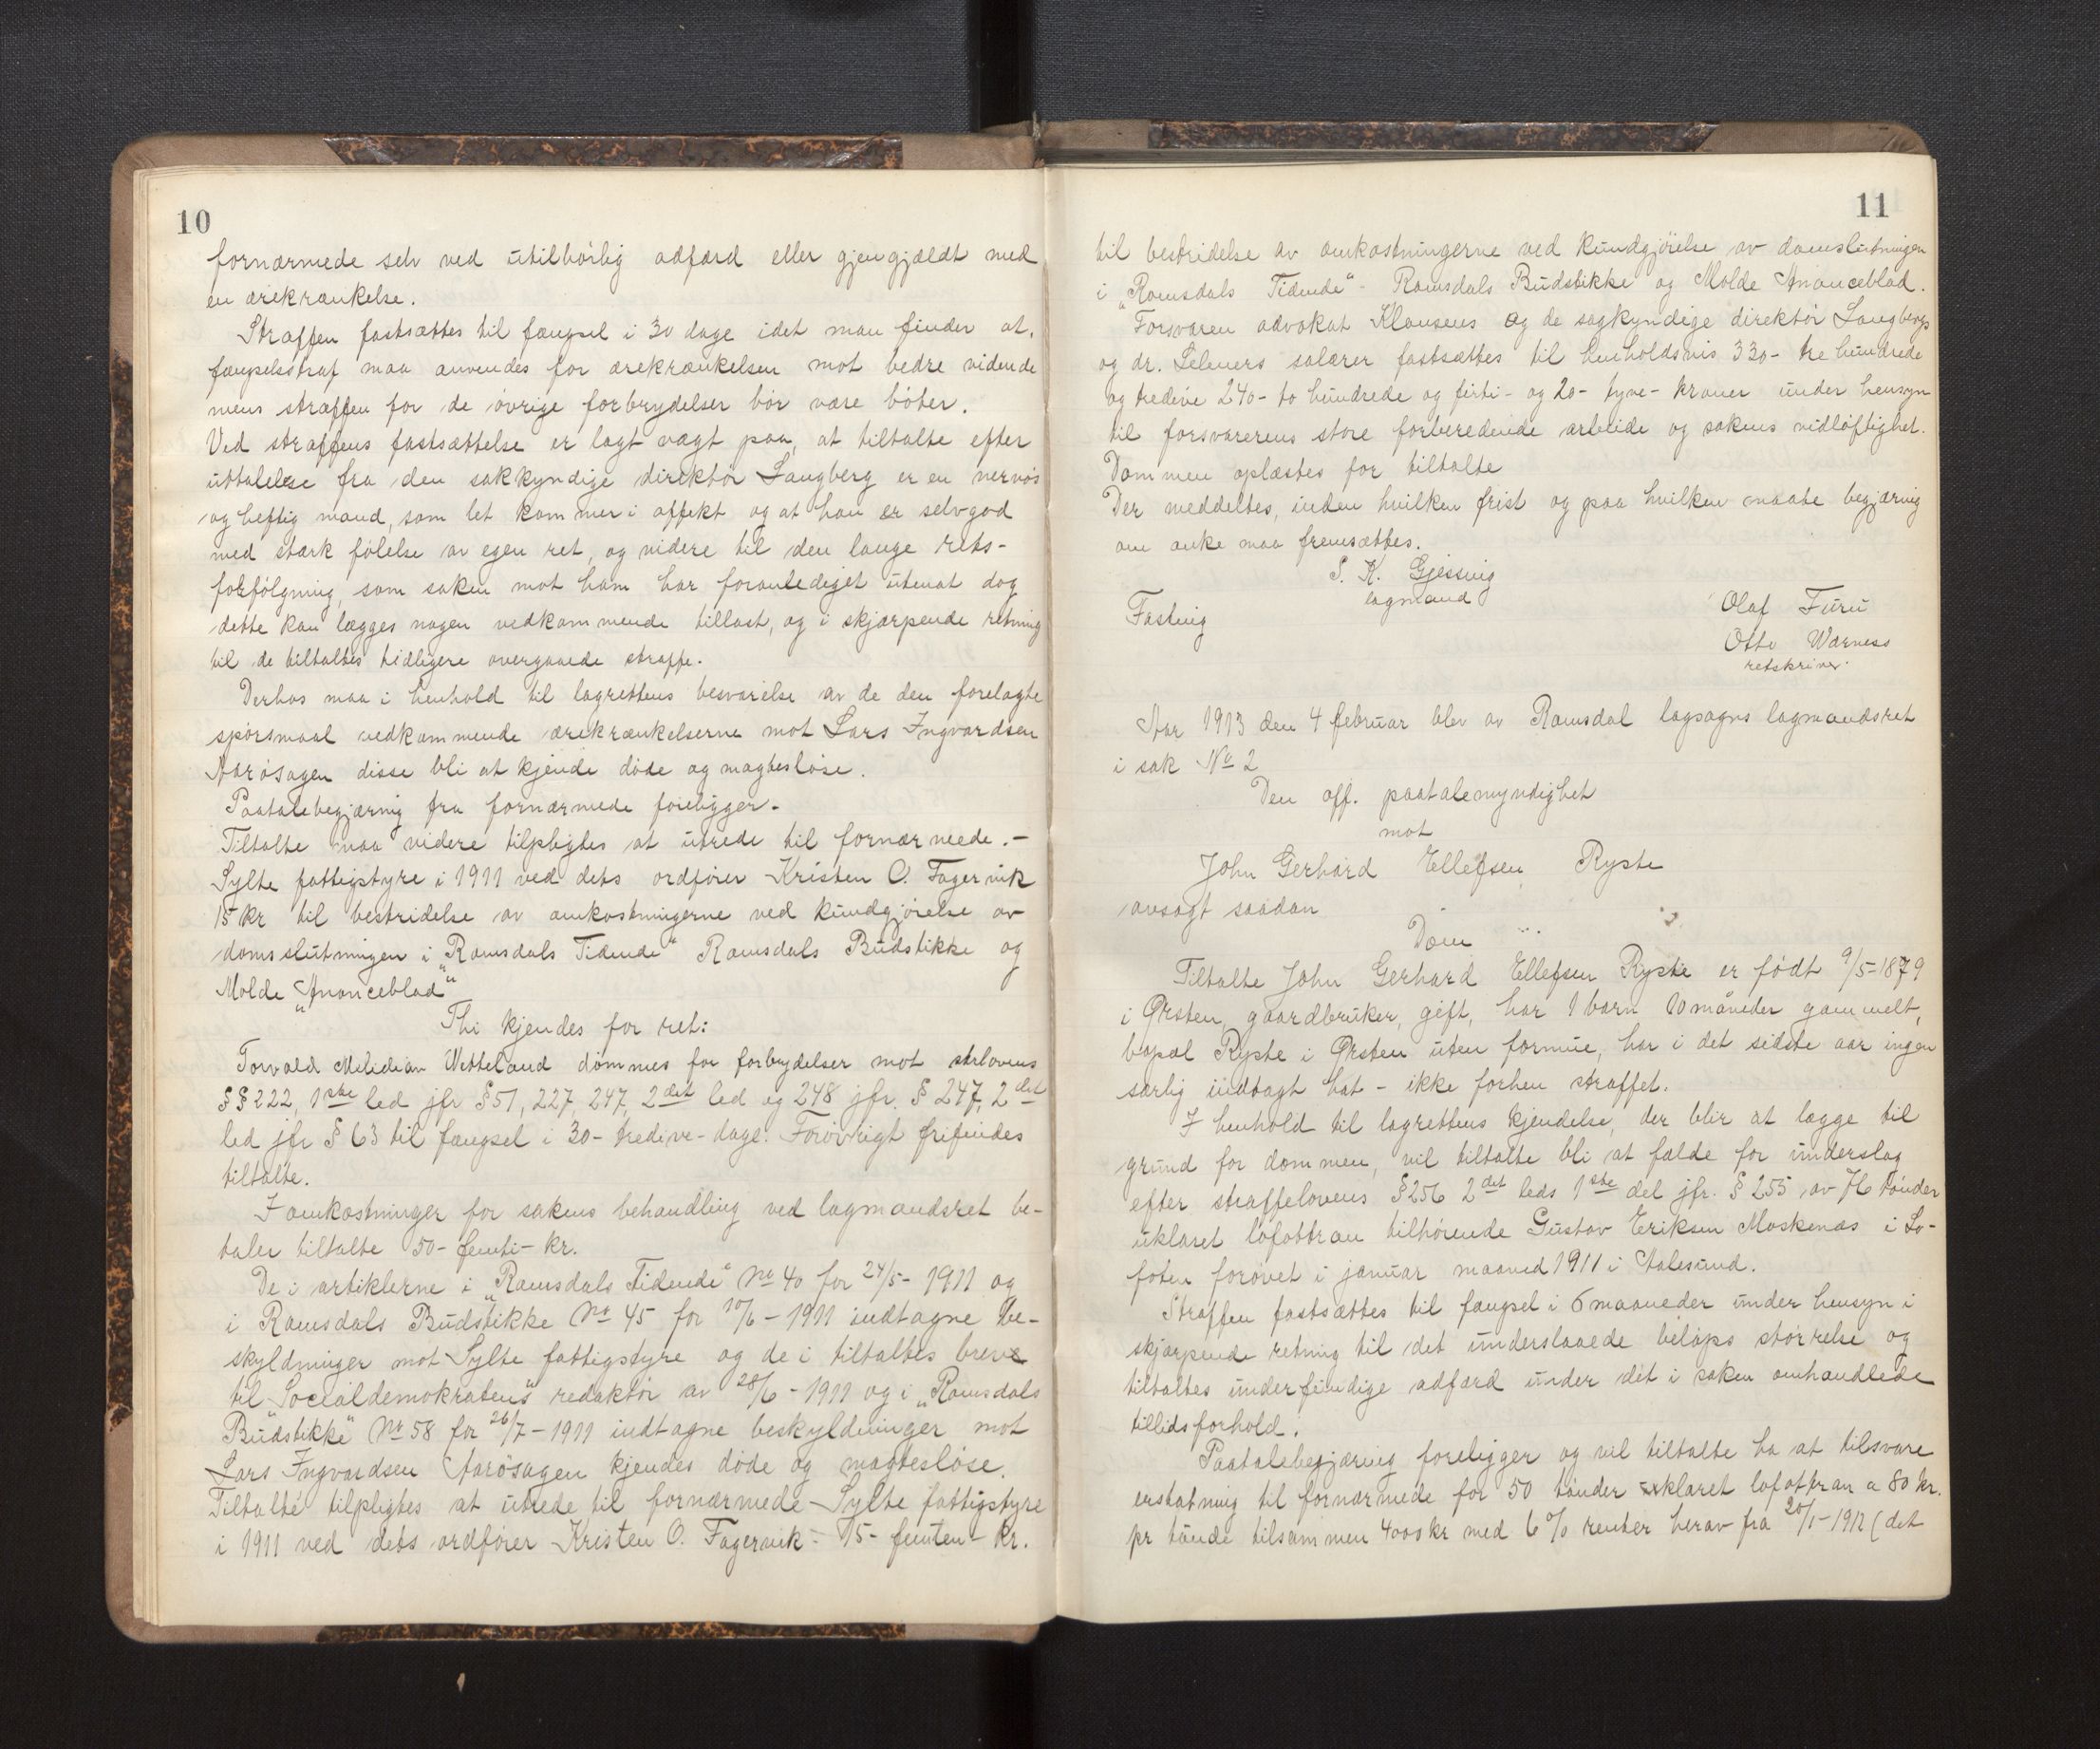 10
fornærmede selv ved utilbørlig adfærd eller gjengjældt med
en ærekrænkelse.
Straffen fastsættes til fængsel i 30 dage idet man finder at
fængselsstraf maa anvendes for ærekrænkelsen mot bedre vidende
mens straffen for de øvrige forbrydelser bør være bøter.
Ved straffens fastsættelse er lagt vægt paa, at tiltalte efter
uttalelse fra den sakkyndige direktør Langberg er en nervøs
og heftig mand, som let kommer i affekt og at han er selvgod
med stærk følelse av egen ret, og videre til den lange rets-
forfølgning, som saken mot ham har foranlediget utenat dog
dette kan lægges nogen vedkommende tillast, og i skjærpende retning
til de tiltaltes tidligere overgaaede straffe.
Derhos maa i henhold til lagrettens besvarelse av de den forelagte
spørsmaal vedkommende ærekrænkelserne mot Lars Ingvardsen
Aarøsagen disse bli at kjende døde og magtesløse.
Paatalebegjæring fra fornærmede foreligger.
Tiltalte maa videre tilpligtes at utrede til fornærmede.-
Sylte fattigstyre i 1911 ved dets ordfører Kristen O. Fagervik
15 kr til bestridelse av omkostningerne ved kundgjørelse av
domsslutningen i „Romsdals Tidende" Romsdals Budstikke og
Molde „Anonceblad"
Thi kjendes for ret:
Torvald Wetteland dømmes for forbrydelser mot strlovens
§§ 222, 1ste led jfr § 51, 227, 247, 2det led og 248 jfr. § 247, 2det
led jfr § 63 til fængsel i 30- tredive- dage. Forøvrigt frifindes
tiltalte.
I omkostninger for sakens behandling ved lagmandsret be-
taler tiltalte 50- femti- kr.
De i artiklerne i „Romsdals Tidende" No 40 for 24/5- 1911 og
i Romsdals Budstikke No 45 for 10/6- 1911 indtagne be-
skyldninger mot Sylte fattigstyre og de i tiltaltes breve
til „Socialdemokratens" redaktør av 28/6- 1911 og i „Romsdals
Budstikke" No 58 for 26/7- 1911 indtagne beskyldninger mot
Lars Ingvardsen Aarøsagen kjendes døde og magtesløse.
Tiltalte tilpligtes at utrede til fornærmede Sylte fattigstyre
i 1911 ved dets ordfører Kristen O. Fagervik- 15- femten- kr.
11
til bestridelse av omkostningerne ved kundgjørelse av domslutningen
i „Romsdals Tidende"- Romsdals Budstikke og Molde Anonceblad.
Forsvaren advokat Klausens og de sagkyndige direktør Langbergs
og dr. Selmers salærer fastsættes til henholdsvis 330- tre hundrede
og tredive 240- to hundrede og firti- og 20- tyve- kroner under hensyn
til forsvarerens store forberedende arbeide og sakens vidløftighet.
Dommen oplæstes for tiltalte
Der meddeltes, inden hvilken frist og paa hvilken maate begjæring
om anke maa fremsættes.
S. K. Gjessing
lagmand
Fasting
Olaf Furu
Otto Wærness
retskriver.
Aar 1913 den 4 februar blev av Romsdal lagsogns lagmandsret
i sak No 2
Den off. paatalemyndighet
mot
John Gerhard Ellefsen Ryste
avsagt saadan
Dom
Tiltalte John Gerhard Ellefsen Ryste er født 9/5-1879
i Ørsten, gaardbruker, gift, har 1 barn 10 måneder gammelt,
bopæl Ryste i Ørsten uten formue, har i det sidste aar ingen
særlig indtægt hat - ikke forhen straffet.
I henhold til lagrettens kjendelse, der blir at lægge til
grund for dommen, vil tiltalte bli at fælde for underslag
efter straffelovens § 256 2det leds 1ste del jfr. § 255 av 76 tønder
uklaret lofottran tilhørende Gustav Eriksen Moskenæs i Lo-
foten forøvet i januar maaned 1911 i Aalesund.
Straffen fastsættes til fængsel i 6 maaneder under hensyn i
skjærpende retning til det underslaaede beløps størrelse og
tiltaltes underfundige adfærd under det i saken omhandlede
tillidsforhold.
Paatalebegjæring foreligger og vil tiltalte ha at tilsvare
erstatning til fornærmede for 50 tønder uklaret lofottran a 80 kr.
pr tønde tilsammen 4000 kr med 6 % renter herav fra 20/1-1912 (det